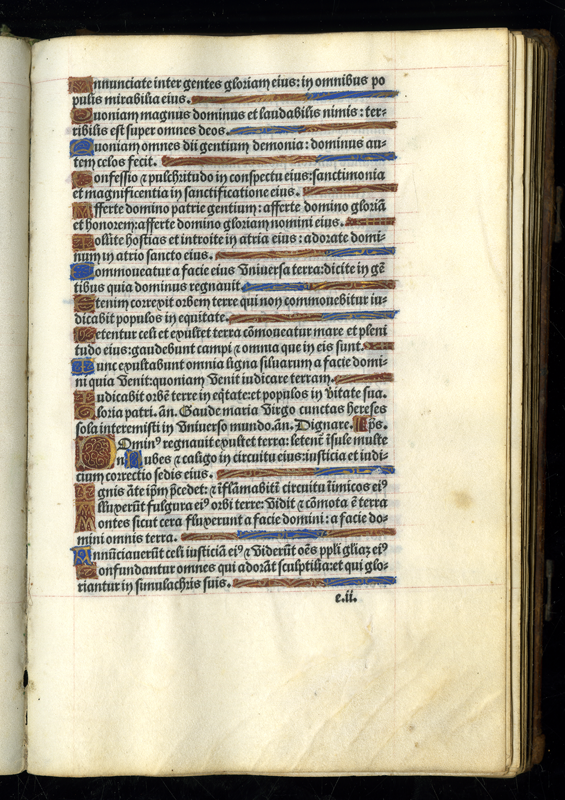 Annunciate inter gentes gloriam eius: in omnibus po
pulis mirabilia eius.
Quoniam magnus dominus et laudabilis nimis : ter-
ribilis est super omnes deos.
Quoniam omnes dii gentium demonia : dominus au-
tem celos fecit.
Confessio ⁊ pulchritudo in conspectu eius: sanctimonia
et magnificentia in sanctificatione eius.
Afferte domino patrie gentium : afferte domino gloriā
et honorem: afferte domino gloriam nomini eius.
Tollite hostias et introite in atria eius : adorate domi-
num in atrio sancto eius.
Commoueatur a facie eius vniuersa terra: dicite in gē
tibus quia dominus regnauit.
Etenim correxit orbem terre qui non commouebitur iu-
dicabit populos in equitate.
Letentur celi et exultet terra cōmoueatur mare et pleni
tudo eius: gaudebunt campi ⁊ omnia que in eis sunt.
Tunc exultabunt omnia ligna siluarum a facie domi-
ni quia venit: quoniam venit iudicare terram.
Iudicabit orbē terre in eq̄tate: et populos in vitate sua.
Gloria patri. añ. Gaude maria virgo cunctas hereses
sola interemisti in vniuerso mundo. añ. Dignare. p̄s.
Dominꝰ regnauit exultet terra: letent̄ īsule multe
Nubes ⁊ caligo in circuitu eius: iusticia et iudi-
cium correctio sedis eius.
Ignis āte ip̄m p̄cedet: ⁊ īflāmabit ī circuitu īimicos eiꝰ
Illuxerūt fulgura eiꝰ orbi terre: vidit ⁊ cōmota ē terra
Montes sicut cera fluxerunt a facie domini : a facie do-
mini omnis terra.
Annūciauerūt celi iusticiā eiꝰ ⁊ viderūt oēs ppl̄i gliaȝ eiꝰ
Confundantur omnes qui adorāt sculptilia: et qui glo-
riantur in simulachris suis.
e.ii.